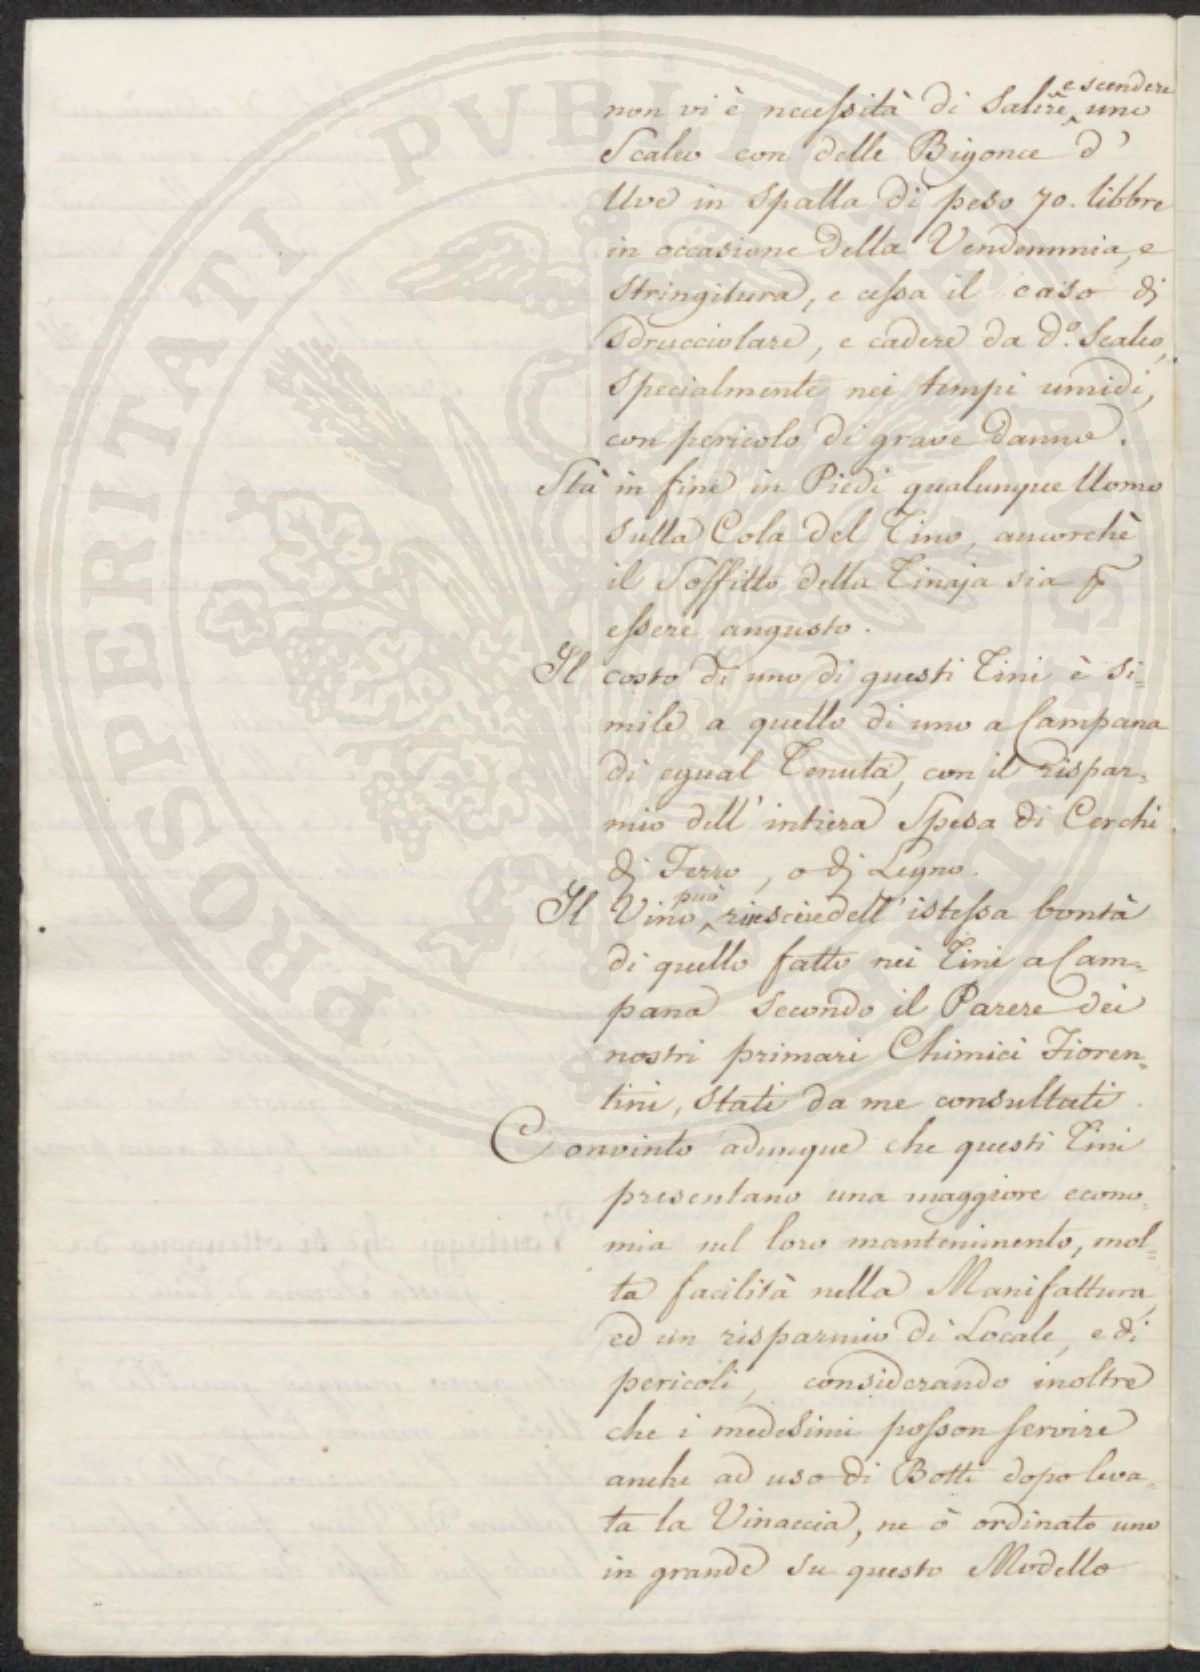 non vi è necessità di Salire ^e scendere uno
Scaleo con delle Bigonce d'
Uve in Spalla di peso 70. libbre
in occasione della Vendemmia, e
Stringitura, e cessa il caso di
Sdrucciolare, e cadere da d.º Scaleo,
Specialmente nei tempi umidi,
con pericolo di grave danno.
Stà in fine in Piedi qualunque Uomo
Sulla Cola del Tino, ancorchè
il Soffitto della Tinaja sia p
essere angusto.
Il costo di uno di questi Tini è si=
mile a quello di uno a Campana
di egual Tenuta, con il rispar=
mio dell' intiera Spesa di Cerchi
di Ferro, o di Legno.
Il Vino ^può riescire dell' istessa bontà
di quello fatto nei Tini a Cam=
pana secondo il Parere dei
nostri primari Chimici Fioren=
tini, Stati da me consultati.
Convinto adunque che questi Tini
presentano una maggiore econo=
mia nel loro mantenimento, mol=
ta facilità nella Manifattura,
ed un risparmio di Locale, e di
pericoli, considerando inoltre
che i medesimi posson servire
anche ad uso di Botti dopo leva=
ta la Vinaccia, ne ò ordinato uno
in grande su questo Modello
PROSPERITATI PVBLICAE